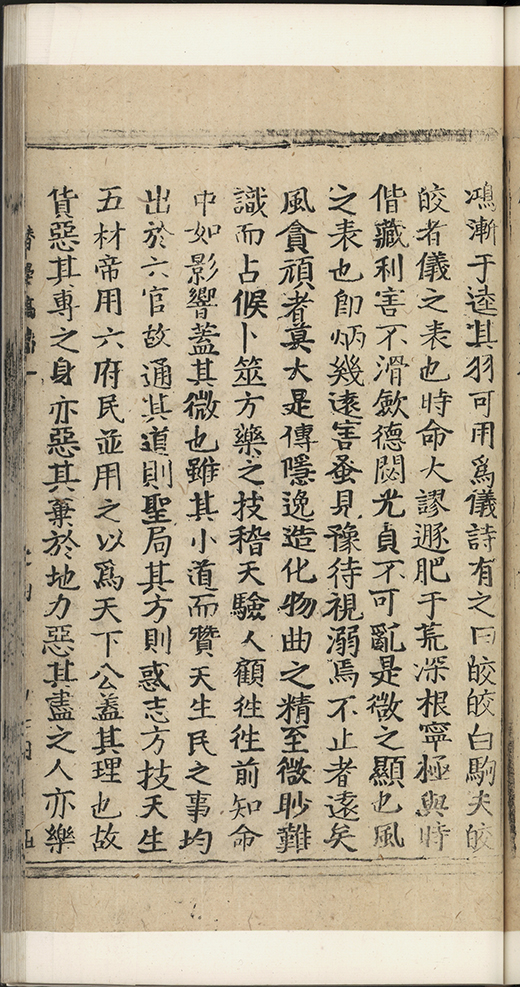 鴻漸于逵其羽可用爲儀詩有之曰皎皎白駒夫皎
皎者儀之表也時命大謬遯肥于荒深根寧極與時
偕藏利害不滑歛德閟光貞不可亂是微之顯也風
之表也卽炳幾遠害蚤見豫待視溺焉不止者遠矣
風貪頑者莫大是傳隱逸造化物曲之精至微眇難
識而占候卜筮方藥之技稽天驗人顧徃徃前知命
中如影響蓋其微也雖其小道而贊天生民之事均
出於六官故通其道則聖局其方則惑志方技天生
五材帝用六府民並用之以爲天下公蓋其理也故
貨惡其專之身亦惡其棄於地力惡其盡之人亦樂